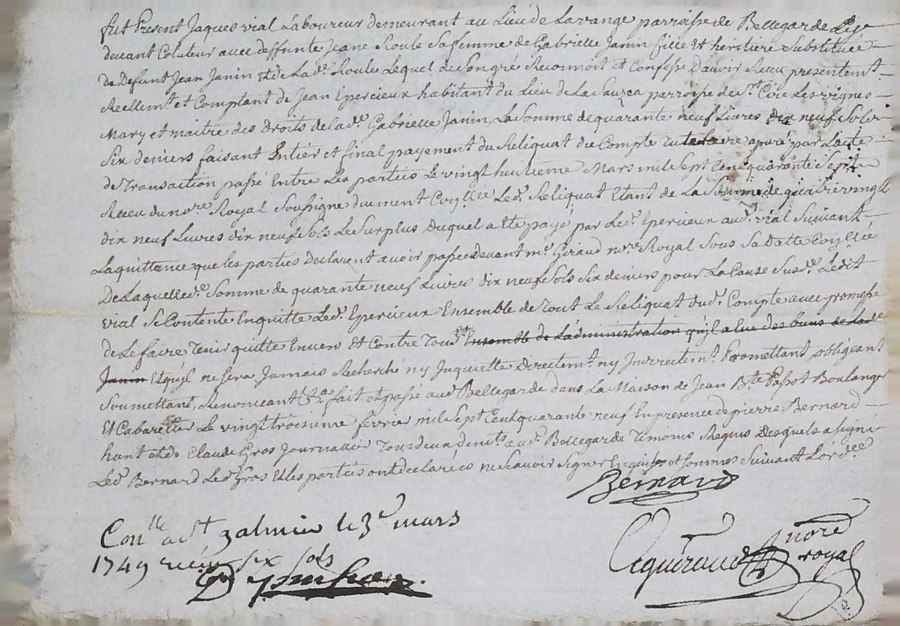 fut Present Jaques vial Laboureur demeurant au Lieu de Lavange parroisse de Bellegarde Ley
devant Coluteur avec deffunte Jeane Roule Sa femme de Gabrielle Janin fille et heritiere Substituée
de Defunt Jean Janin et de Lad.e Roule Lequel de Son gré Reconnoit et Confesse d'avoir Receu presentemt.
Reellemt. et Comptant de Jean Epercieux habitant du Lieu de La parroisse de St. Cire Les vignes
Mary et maitre des Droits de lad.e Gabrielle Janin, La Somme de quarante neuf Livres Dix neuf Sols
Six deniers faisant Entier et final payement du Reliquat du Compte apuré par Lacte
de Transaction passé Entre Les parties Le vingt huitieme Mars mil Sept Cent quarante Sept
Receu du nore. Royal Soussigné duement Led. Reliquat Etant de La Somme de quatre vingt
dix neuf Livres dix neuf Sols Le Surplus Duquel a eté payé par Led. Epercieux aud. vial Suivant
La quittance que les parties declarent avoir passé devant me. Giraud nore. Royal Sous Sa Datte
De Laquelle d.e Somme de quarante neuf Livres dix neuf Sols Six deniers pour La Cause Susd. Ledit
vial Se Contente En quitte Led. Epercieux Ensemble de Tout Le Reliquat dud. Compte avec promesse
de Le faire Tenir quitte Envers Et Contre Tous Ensemble de Ladministration quil a Eue des biens de Lad.e
Janin Et quil ne Sera Jamais Recherché ny Inquietté Directemt. ny Indirectemt. Promettant obligeant
Soumettant, Renonceant &a. fait et passé aud. Bellegarde dans La Maison de Jean Bte. Passot Boulanger
Et Cabaretier Le vingt troisieme fevrier mil Sept Cent quarante neuf En presence de pierre Bernard
Claude Gros Journalier Tous deux aud. Bellegarde Temoins Requis Desquels a Signé
Led. Bernard Led. Gros Et Les parties ont declaré ne Savoir Signer Enquis et Sommés Suivant Lord.ce
Bernard
Con.lle a St. galmier le 3e mars
1749 six sols
nore
royal